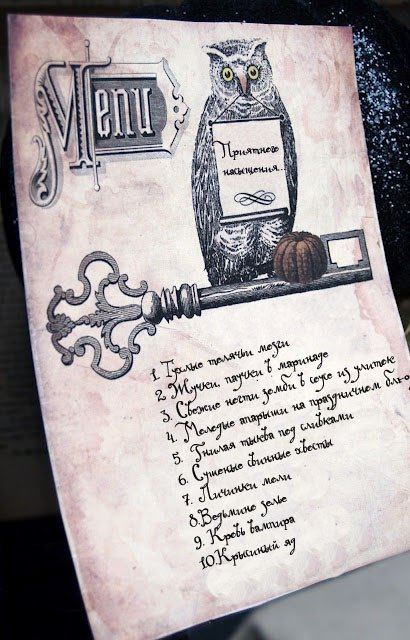 Menu
Приятного
насыщения...
1. Тухлые телячьи мозги
2. Жучки, паучки в маринаде
3. Свежие ногти зомби в соусе из улиток
4. Молодые упырыши на праздничном
5. Гнилая тыква под сливками
6. Сушеные свинные хвосты
7. Личинки моли
8. Ведьмино зелье
9. Кровь вампира
10. Крысиный яд